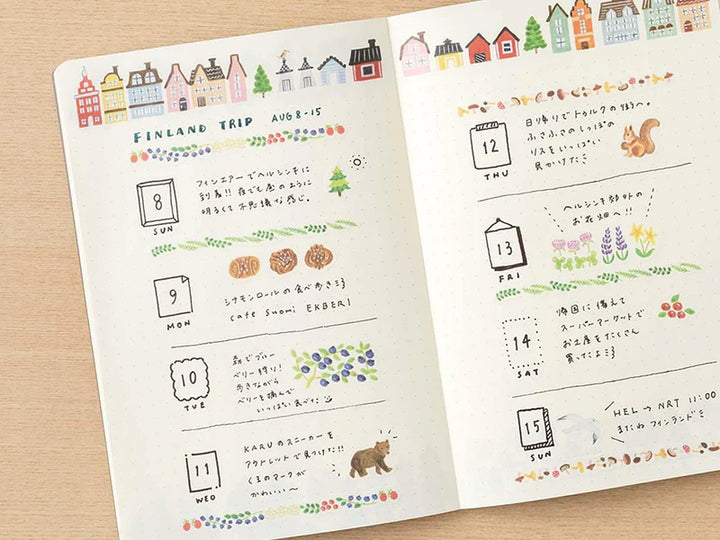 FINLAND TRIP AUG 8-15
8
SUN
フィンエアーでヘルシンキに
到着!! 夜でも昼のように
明るくて不思議な感じ。
9
MON
シナモンロールの食べ歩き
cafe Suomi EKBERI
10
TUE
森でブルー
ベリー狩り!
歩きながら
ベリーを摘んで
いっぱい食べた
11
WED
KARUのスニーカーを
アウトレットで見つけた!!
くまのマークが
かわいい〜
12
THU
日帰りでトゥルクの街へ。
ふさふさのしっぽの
リスをいっぱい
見かけた
13
FRI
ヘルシンキ郊外の
お花畑へ!!
14
SAT
帰国に備えて
スーパーマーケットで
お土産をたくさん
買ったよ
15
SUN
HEL → NRT 11:00
またね フィンランド